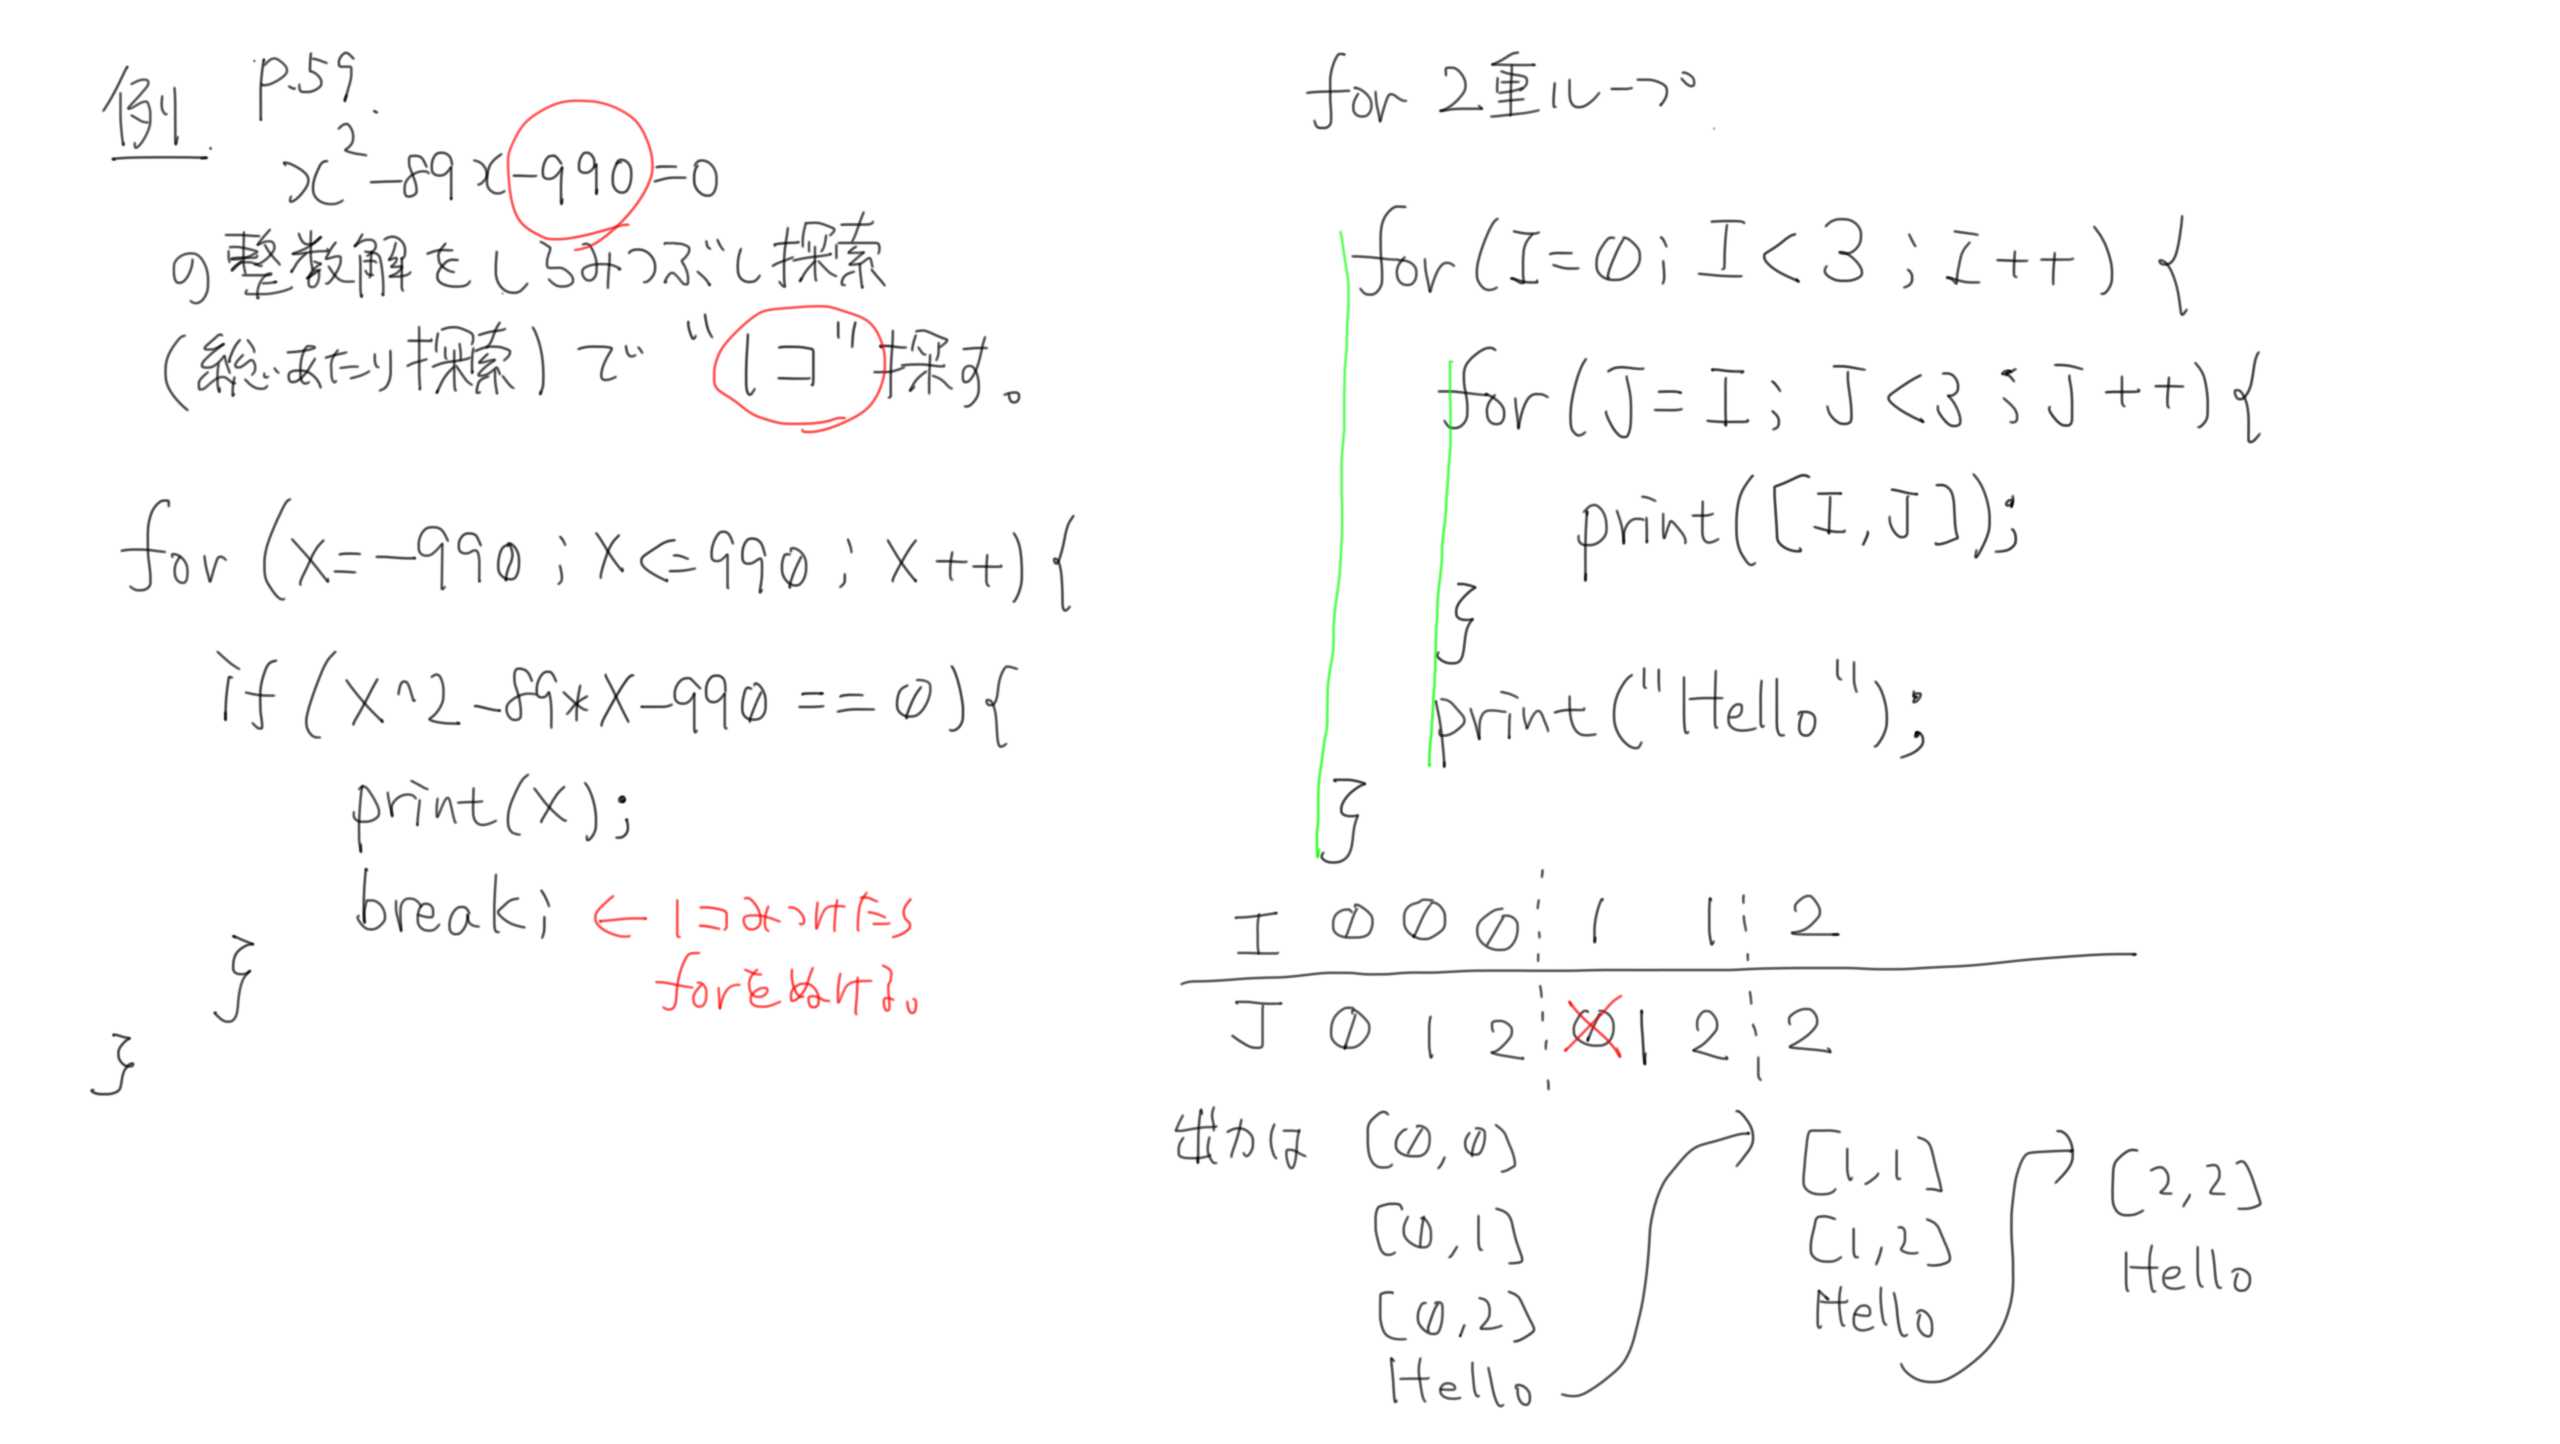 例. P.59.
x²-89x-990=0
の整数解をしらみつぶし探索
(総あたり探索)で"1コ"探す。
for (X=-990; X<=990; X++){
if (X^2-89*X-990==0){
print(X);
break; ←1コみつけたら
forをぬける。
}
}
for 2重ループ.
for(I=0; I<3; I++){
for(J=I; J<3; J++){
print([I,J]);
}
print("Hello");
}
I 0 0 0 1 1 2
J 0 1 2 0 1 2 2
出力は [0,0] [1,1] [2,2]
[0,1] [1,2] Hello
[0,2] Hello
Hello